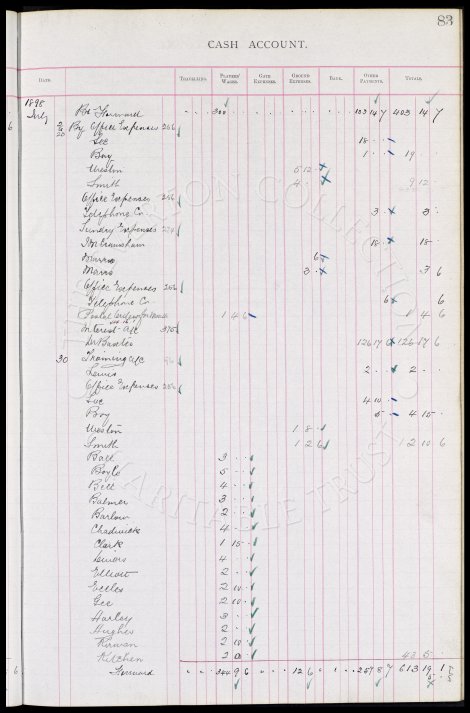 83
CASH ACCOUNT.
DATE. TRAVELLING. PLAYERS' WAGES. GATE EXPENSES. GROUND EXPENSES. BANK. OTHER PAYMENTS. TOTALS.
1898
July By Forward 300 . . 103 14 7 403 14 7
By Office Expenses 256
Gee 18 . .
Boy 1 . . 19 . .
Weston 5 12 .
Smith 4 . . 9 12
Office Expenses 256
Telephone Co 3 . 3 .
Sundry Expenses 254
18 . 18 .
6
Morris 3 . 3 6
Office Expenses 256
Telephone Co 6 6
1 4 6 1 4 6
Interest a/c 375
Dr Baxter 126 17 6 126 17 6
30 Training a/c
Lewis 2 . . 2 . .
Office Expenses 256
Gee 4 10 .
Boy 5 . 4 15 .
Weston 1 8 .
Smith 1 2 6 2 10 6
Ball 3 . .
Boyle 5 . .
Bell 4 . .
Balmer 3 . .
Barlow 2 . .
Chadwick 4 . .
Clark 1 15 .
4 . .
Elliott 2 . .
Eccles 2 10 .
Gee 2 10 .
Harley 3 . .
Hughes 2 . .
Kirwan 2 10 .
Kitchen 2 0 . 43 5 .
Forward 344 9 6 12 6 257 8 7 613 19 1